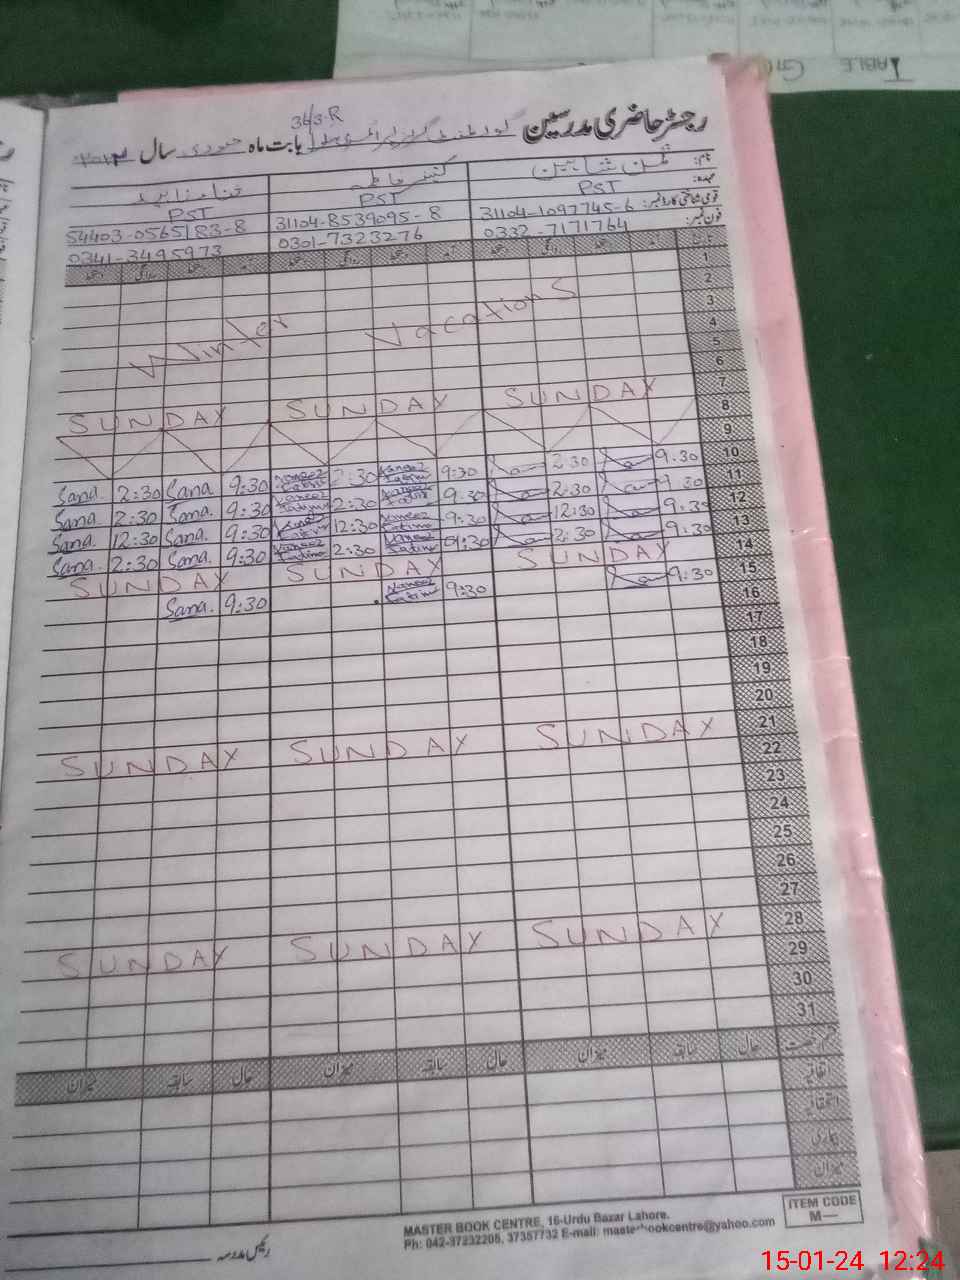 TABLE
343-R
رجسٹر حاضری مدرسین بابت ماہ جنوری سال
نام:
عہدہ: PST PST PST
قومی شناختی کارڈ نمبر: 31104-1097745-6 31104-8539095-8 54403-0565183-8
فون نمبر: 0332-7171764 0301-7323276 0341-3495973
1
2
3
Winter Vacations
4
5
6
7
SUNDAY SUNDAY SUNDAY
8
9
10
Sana. 2:30 Sana 9:30 Kaneez Fatima 2:30 Kaneez Fatima 9:30 2:30 9.30
11
Sana. 2:30 Sana. 9:30 Kaneez Fatima 2:30 Kaneez Fatima 9.30 2:30 9.30
12
Sana. 12:30 Sana. 9:30 Kaneez Fatima 12:30 Kaneez Fatima 9:30 12:30 9:30
13
Sana. 2:30 Sana. 9:30 Kaneez Fatima 2:30 Kaneez Fatima 9:30 2:30 9:30
14
SUNDAY SUNDAY SUNDAY
15
Sana. 9:30 Kaneez Fatima 9:30 9:30
16
17
18
19
20
21
SUNDAY SUNDAY SUNDAY
22
23
24
25
26
27
28
SUNDAY SUNDAY SUNDAY
29
30
31
حال سابقہ میزان حال سابقہ میزان حال سابقہ میزان
اتفاقیہ
استحقاقیہ
بیماری
میزان
ITEM CODE
M—
MASTER BOOK CENTRE, 16-Urdu Bazar Lahore.
Ph: 042-37232205, 37357732 E-mail: masterbookcentre@yahoo.com
رئیس مدرسہ
15-01-24 12:24